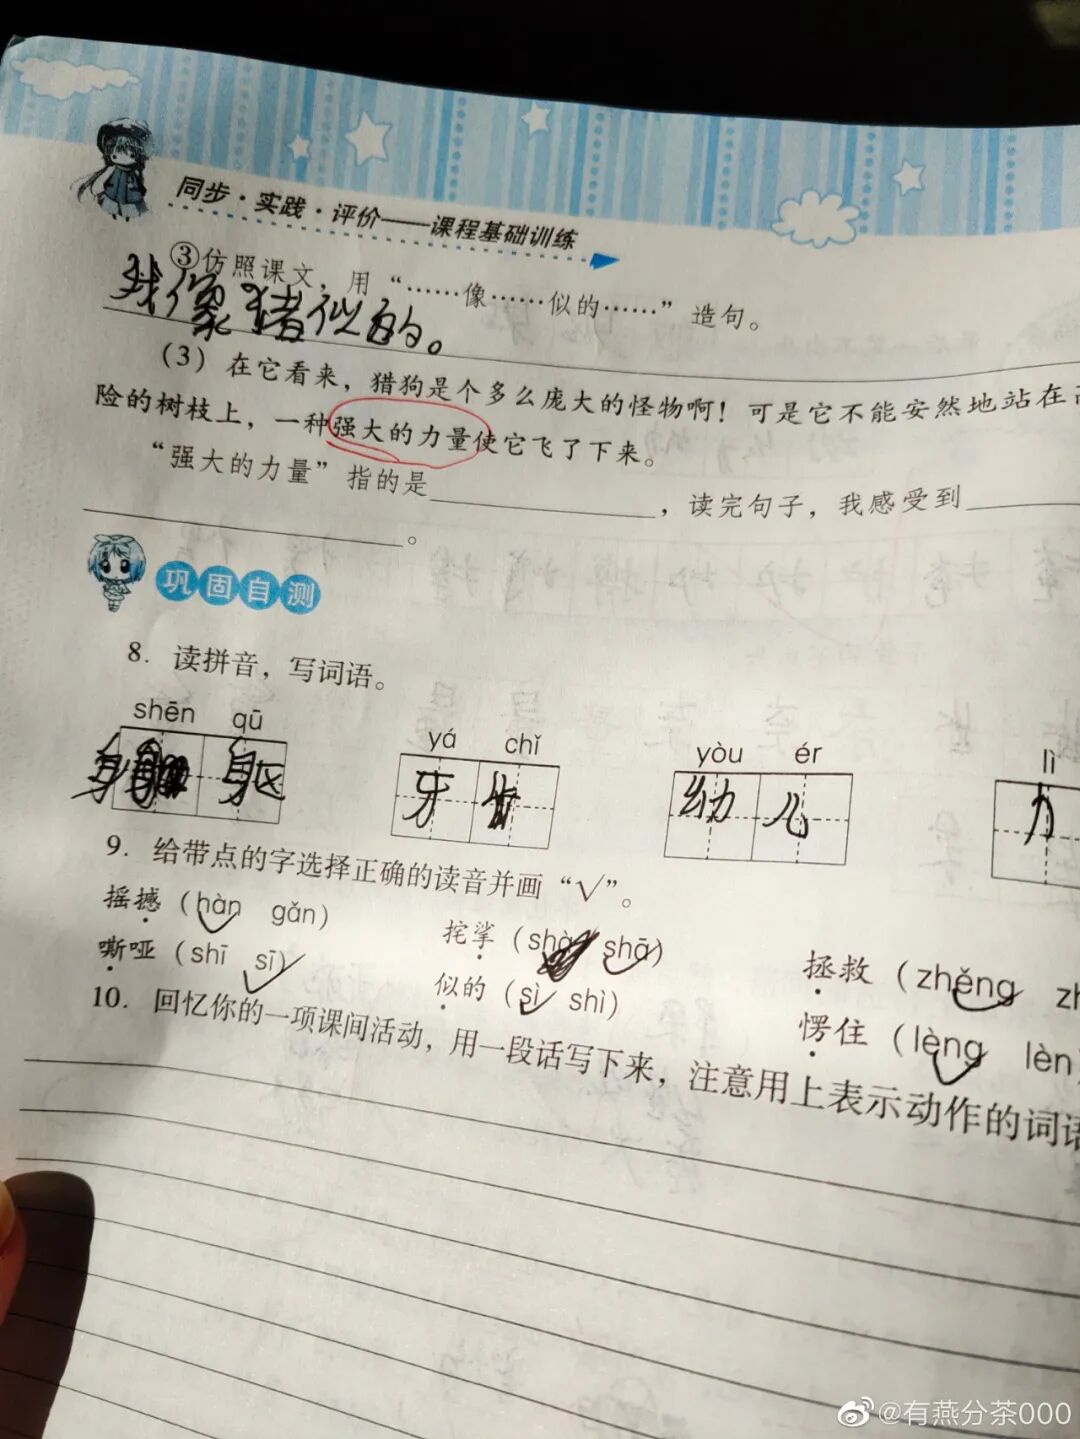 同步·实践·评价——课程基础训练
③仿照课文，用“……像……似的……”造句。
我像猪似的。
（3）在它看来，猎狗是个多么庞大的怪物啊！可是它不能安然地站在高
险的树枝上，一种强大的力量使它飞了下来。
“强大的力量”指的是，读完句子，我感受到
。
巩固自测
8. 读拼音，写词语。
shēn qū yá chǐ yòu ér lì
躯 牙 幼儿 力
9. 给带点的字选择正确的读音并画“√”。
摇撼（hàn gǎn） 挓挲（shà shā） 拯救（zhěng zh
嘶哑（shī sī） 似的（sì shì） 愣住（lèng lèn）
10. 回忆你的一项课间活动，用一段话写下来，注意用上表示动作的词语
@有燕分茶000